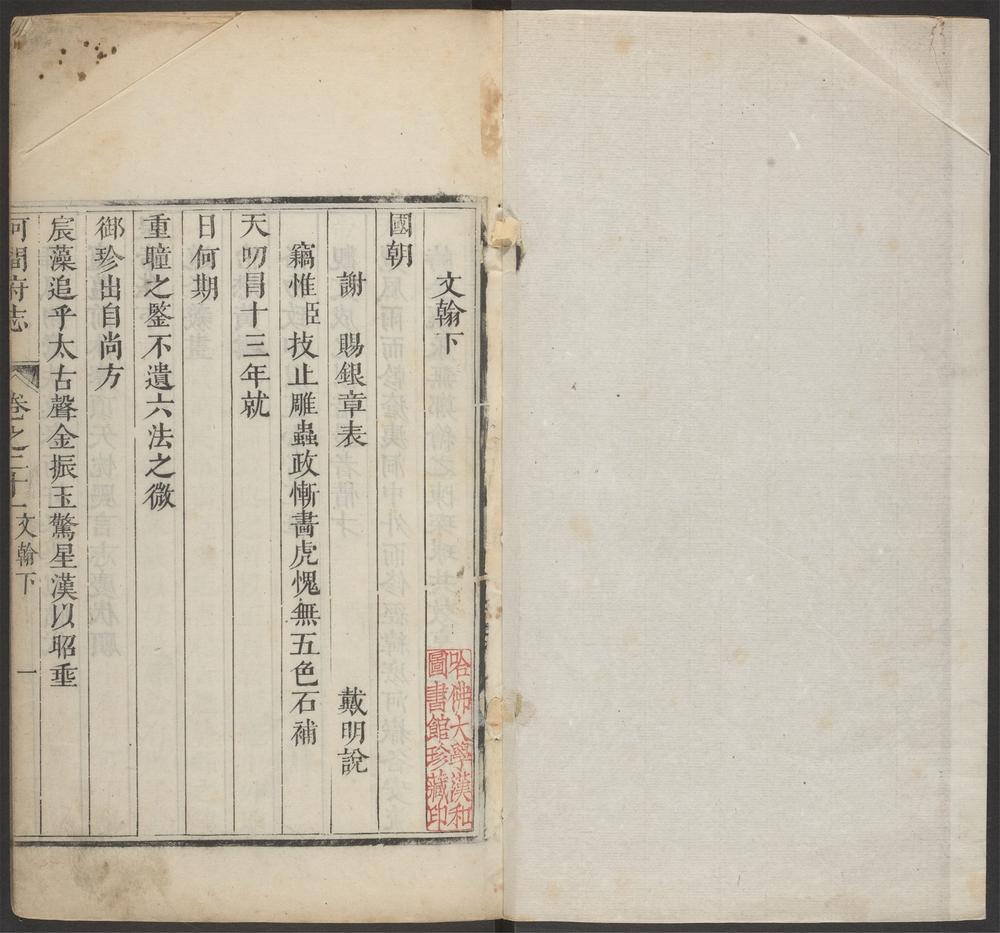 文翰下
國朝
謝　賜銀章表　戴明說
竊惟臣技止雕蟲政慚畵虎愧無五色石補
天叨冒十三年就
日何期
重瞳之鑒不遺六法之微
御珍出自尚方
宸藻追乎太古聲金振玉驚星漢以昭垂
河間府志　卷之二十一文翰下　一
哈佛大學漢和
圖書館珍藏印